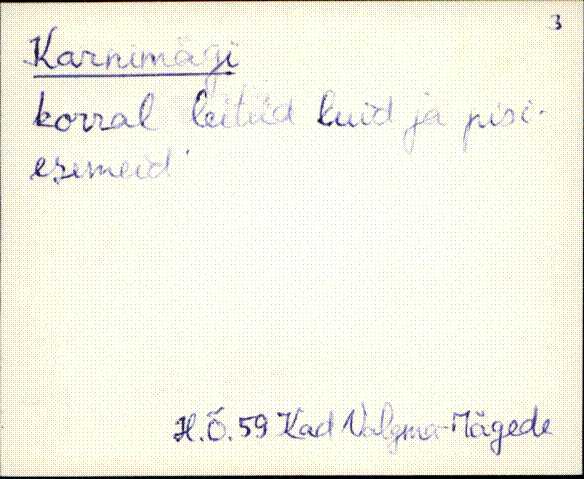 3
Karnimägi
korral leitud luid ja pisi-
esemeid.
H.Õ. 59 Kad Valgma-Mägede